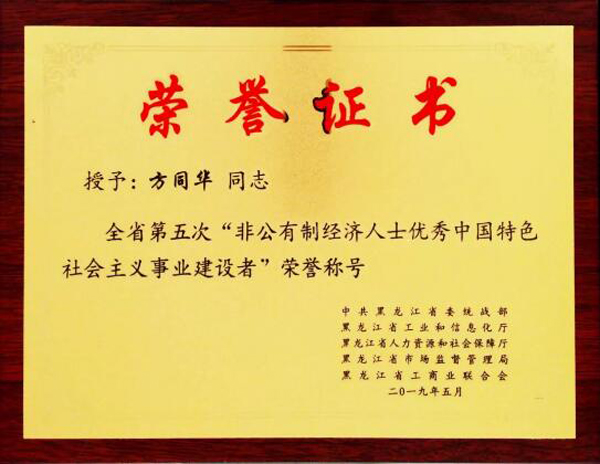 荣誉证书
授予：方同华 同志
全省第五次“非公有制经济人士优秀中国特色
社会主义事业建设者”荣誉称号
中共黑龙江省委统战部
黑龙江省工业和信息化厅
黑龙江省人力资源和社会保障厅
黑龙江省市场监督管理局
黑龙江省工商业联合会
二〇一九年五月